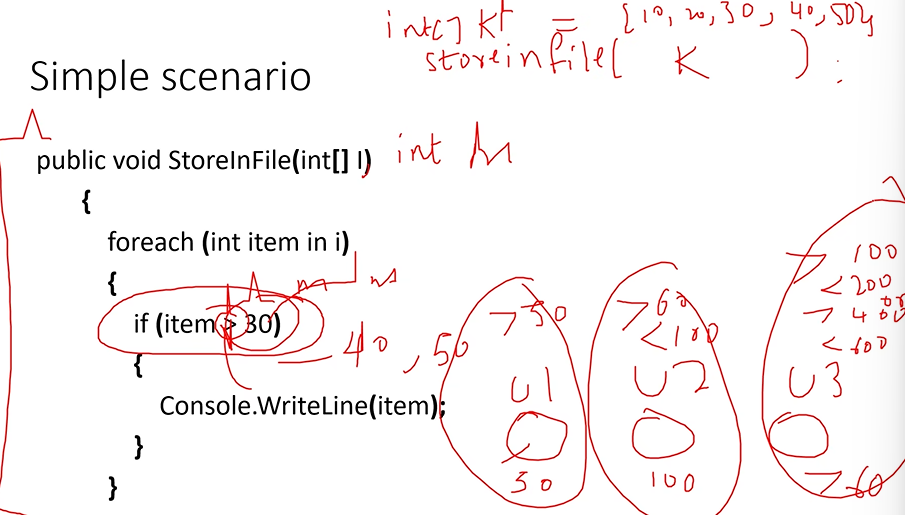 int[] K = {10, 20, 30, 40, 50};
storeinfile( K ) ;
Simple scenario
public void StoreInFile(int[] I) int
{
foreach (int item in i)
{
if (item > 30)
40, 50
{
Console.WriteLine(item);
}
}
>30
U1
30
>60
<100
U2
100
> 100
<200
or
> 400
<600
U3
>60